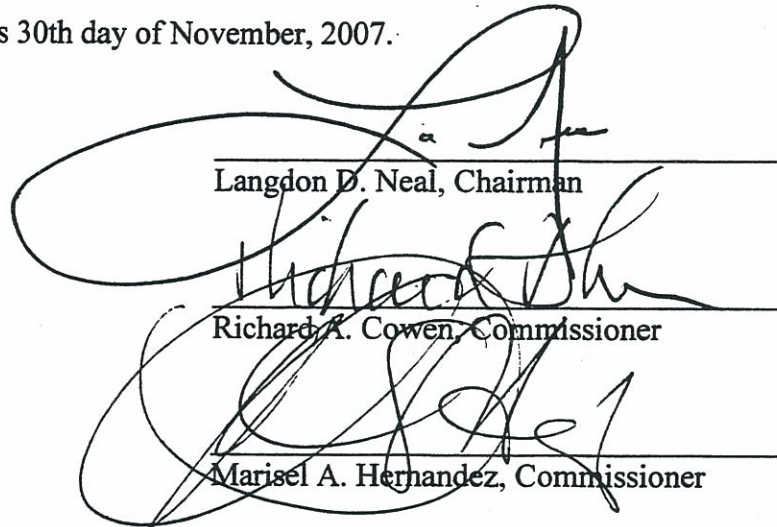 s 30th day of November, 2007.
Langdon D. Neal, Chairman
Richard A. Cowen, Commissioner
Marisel A. Hernandez, Commissioner